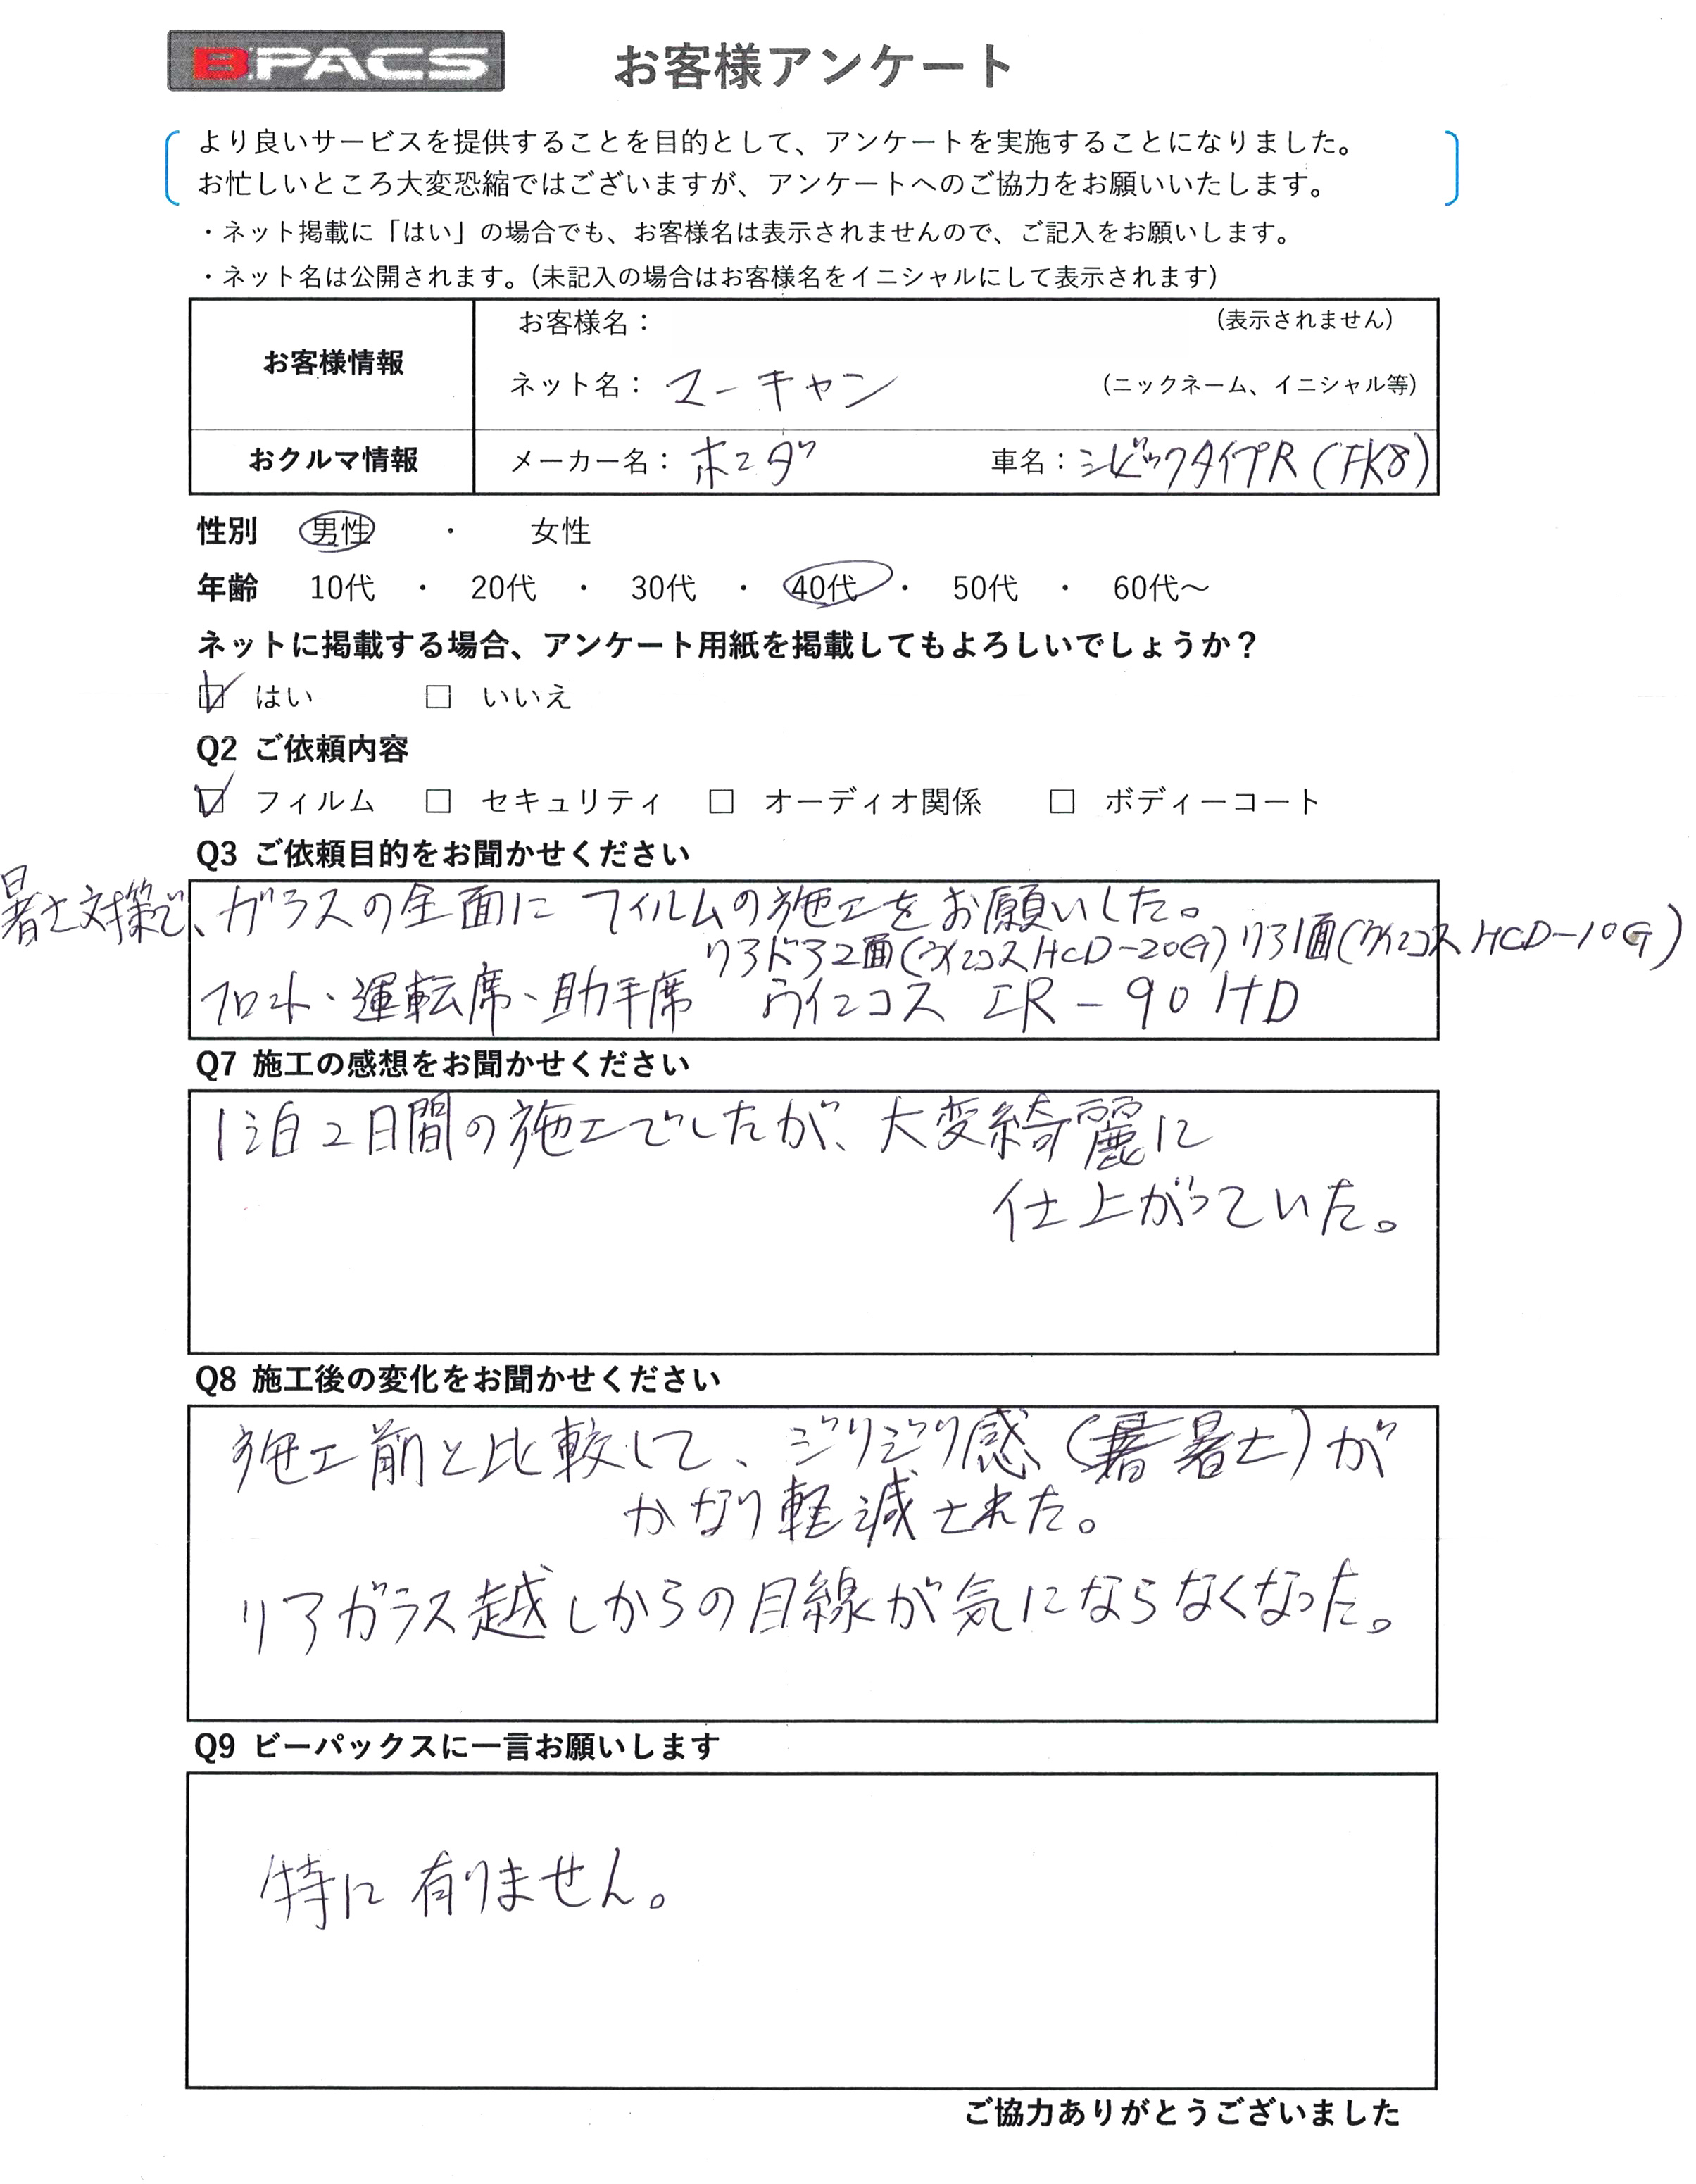 B-PACS お客様アンケート
より良いサービスを提供することを目的として、アンケートを実施することになりました。
お忙しいところ大変恐縮ではございますが、アンケートへのご協力をお願いいたします。
・ネット掲載に「はい」の場合でも、お客様名は表示されませんので、ご記入をお願いします。
・ネット名は公開されます。(未記入の場合はお客様名をイニシャルにして表示されます)
お客様情報
お客様名： (表示されません)
ネット名： マーキャン (ニックネーム、イニシャル等)
おクルマ情報 メーカー名： ホンダ 車名：シビックタイプR (FK8)
性別 男性 ・ 女性
年齢 10代 ・ 20代 ・ 30代 ・ 40代 ・ 50代 ・ 60代～
ネットに掲載する場合、アンケート用紙を掲載してもよろしいでしょうか？
☑ はい □ いいえ
Q2 ご依頼内容
☑ フィルム □ セキュリティ □ オーディオ関係 □ ボディーコート
Q3 ご依頼目的をお聞かせください
暑さ対策で、ガラスの全面にフィルムの施工をお願いした。
リアドア2面(ウインコスHCD-20G) リア1面(ウインコスHCD-10G)
フロント・運転席・助手席 ウインコス IR-90HD
Q7 施工の感想をお聞かせください
1泊2日間の施工でしたが、大変綺麗に
仕上がっていた。
Q8 施工後の変化をお聞かせください
施工前と比較して、ジリジリ感(暑さ)が
かなり軽減された。
リアガラス越しからの目線が気にならなくなった。
Q9 ビーパックスに一言お願いします
特に有りません。
ご協力ありがとうございました